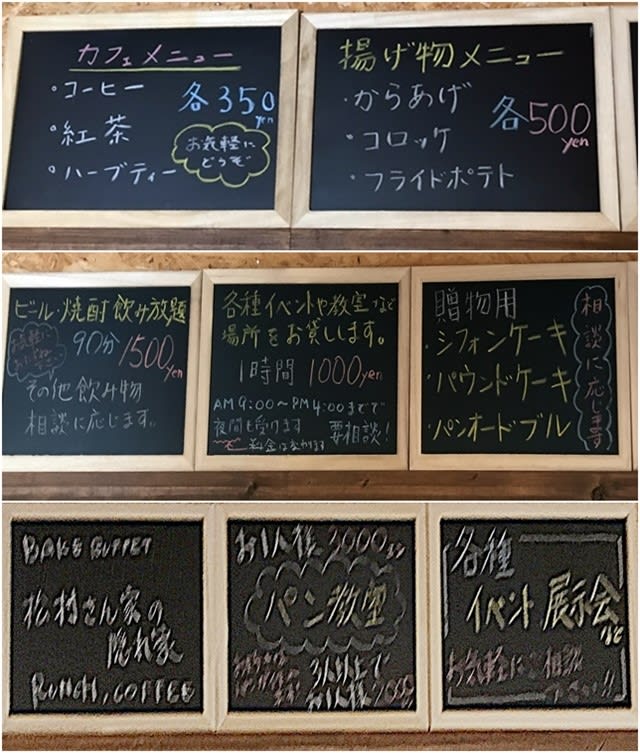 カフェメニュー
・コーヒー
・紅茶
・ハーブティー
各350yen
お気軽に
どうぞ
揚げ物メニュー
・からあげ
・コロッケ
・フライドポテト
各500yen
ビール・焼酎飲み放題
90分 1500yen
その他飲み物
相談に応じます。
各種イベントや教室など
場所をお貸しします。
1時間 1000yen
AM9:00〜PM4:00まで
夜間も有ります 要相談!
贈物用
・シフォンケーキ
・パウンドケーキ
・パンオードブル
相談に応じます
BAKE BUFFET
松村さん家の
隠れ家
RUNCH, COFFEE
お1人様 3000
パン教室
3人以上で
お1人様
各種
イベント 展示会
など
お気軽にご相談
下さい!!